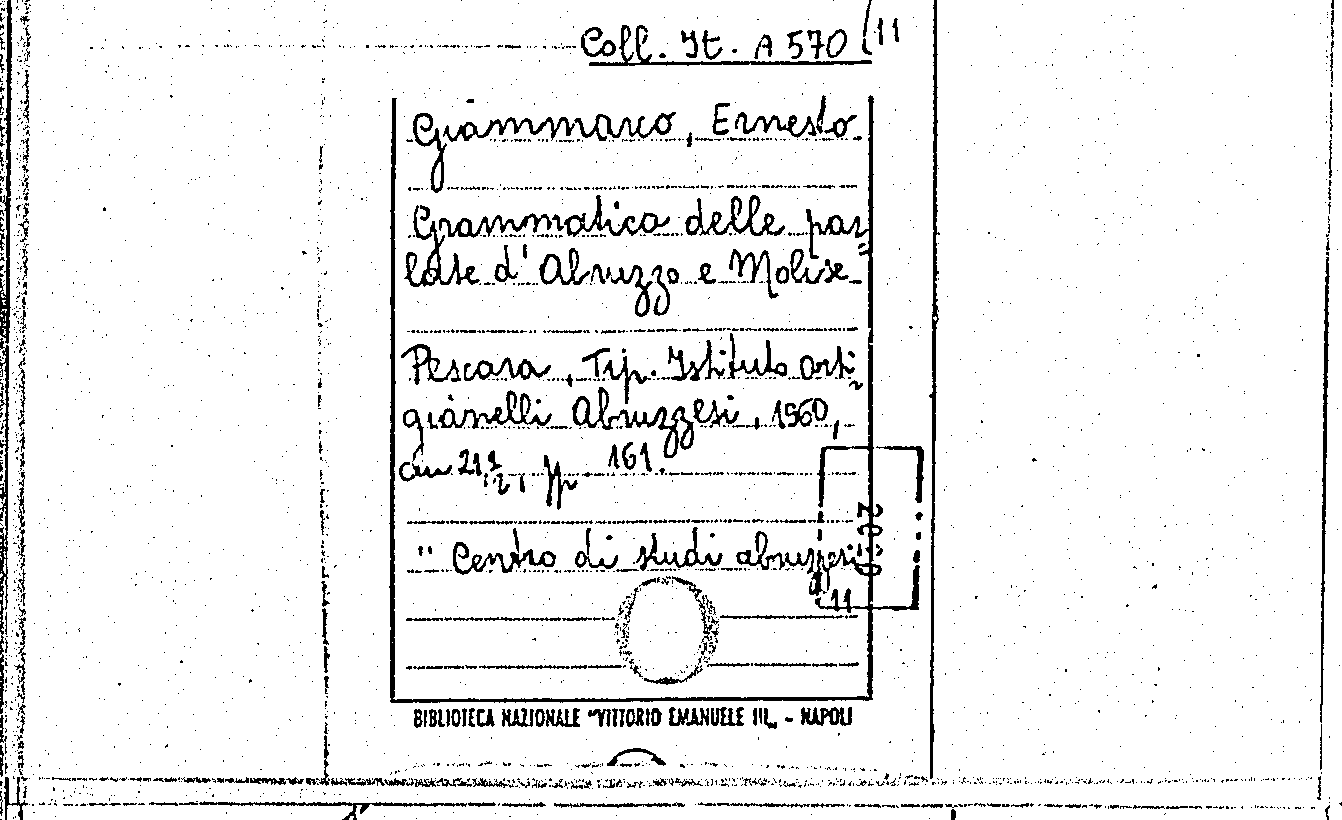 Coll. It. A 570 (11
Giammarco, Ernesto
Grammatica delle par=
late d'Abruzzo e Molise
Pescara, Tip. Istituto Arti=
gianelli Abruzzesi, 1960,
cm 21 1/2, pp. 161.
" Centro di studi abruzzesi
11
BIBLIOTECA NAZIONALE "VITTORIO EMANUELE III„ - NAPOLI